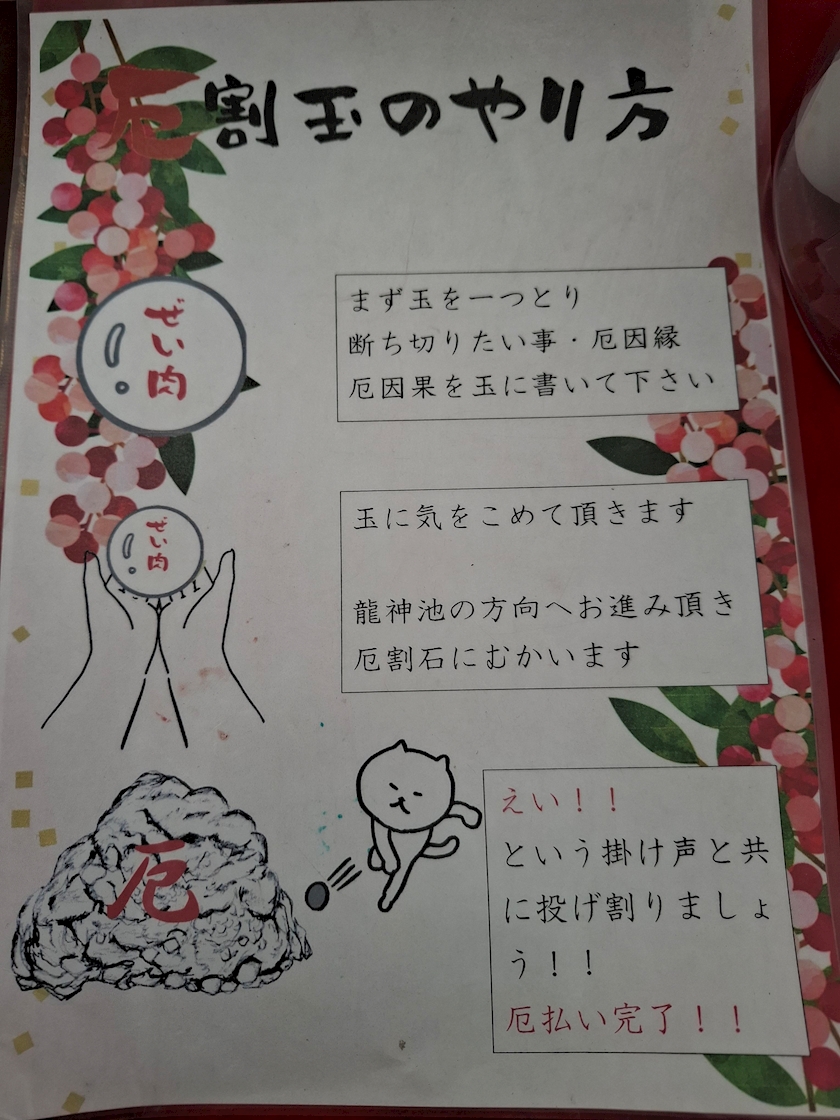 厄割玉のやり方
ぜい肉
まず玉を一つとり
断ち切りたい事・厄因縁
厄因果を玉に書いて下さい
ぜい肉
玉に気をこめて頂きます
龍神池の方向へお進み頂き
厄割石にむかいます
厄
えい！！
という掛け声と共
に投げ割りましょ
う！！
厄払い完了！！